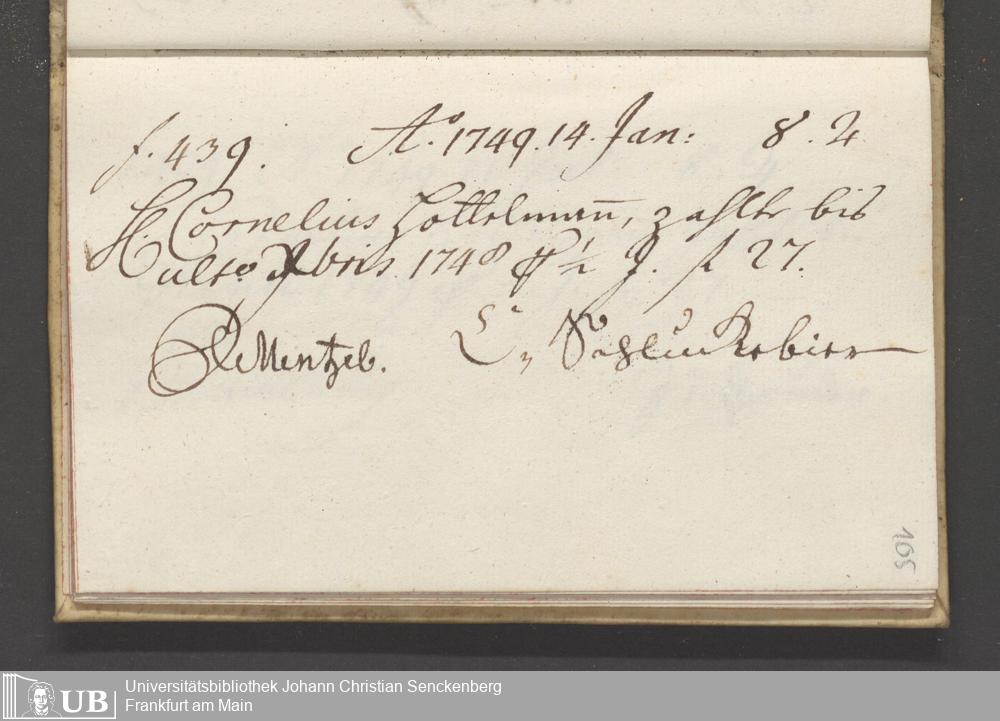 f. 439. Aº. 1749. 14. Jan: 8. 4
H. Cornelius Hottelman̅, zahlte bis
ulto Xbris 1748 ½ J. f 27.
Mentzel. Schluckebier
165
UB Universitätsbibliothek Johann Christian Senckenberg
Frankfurt am Main